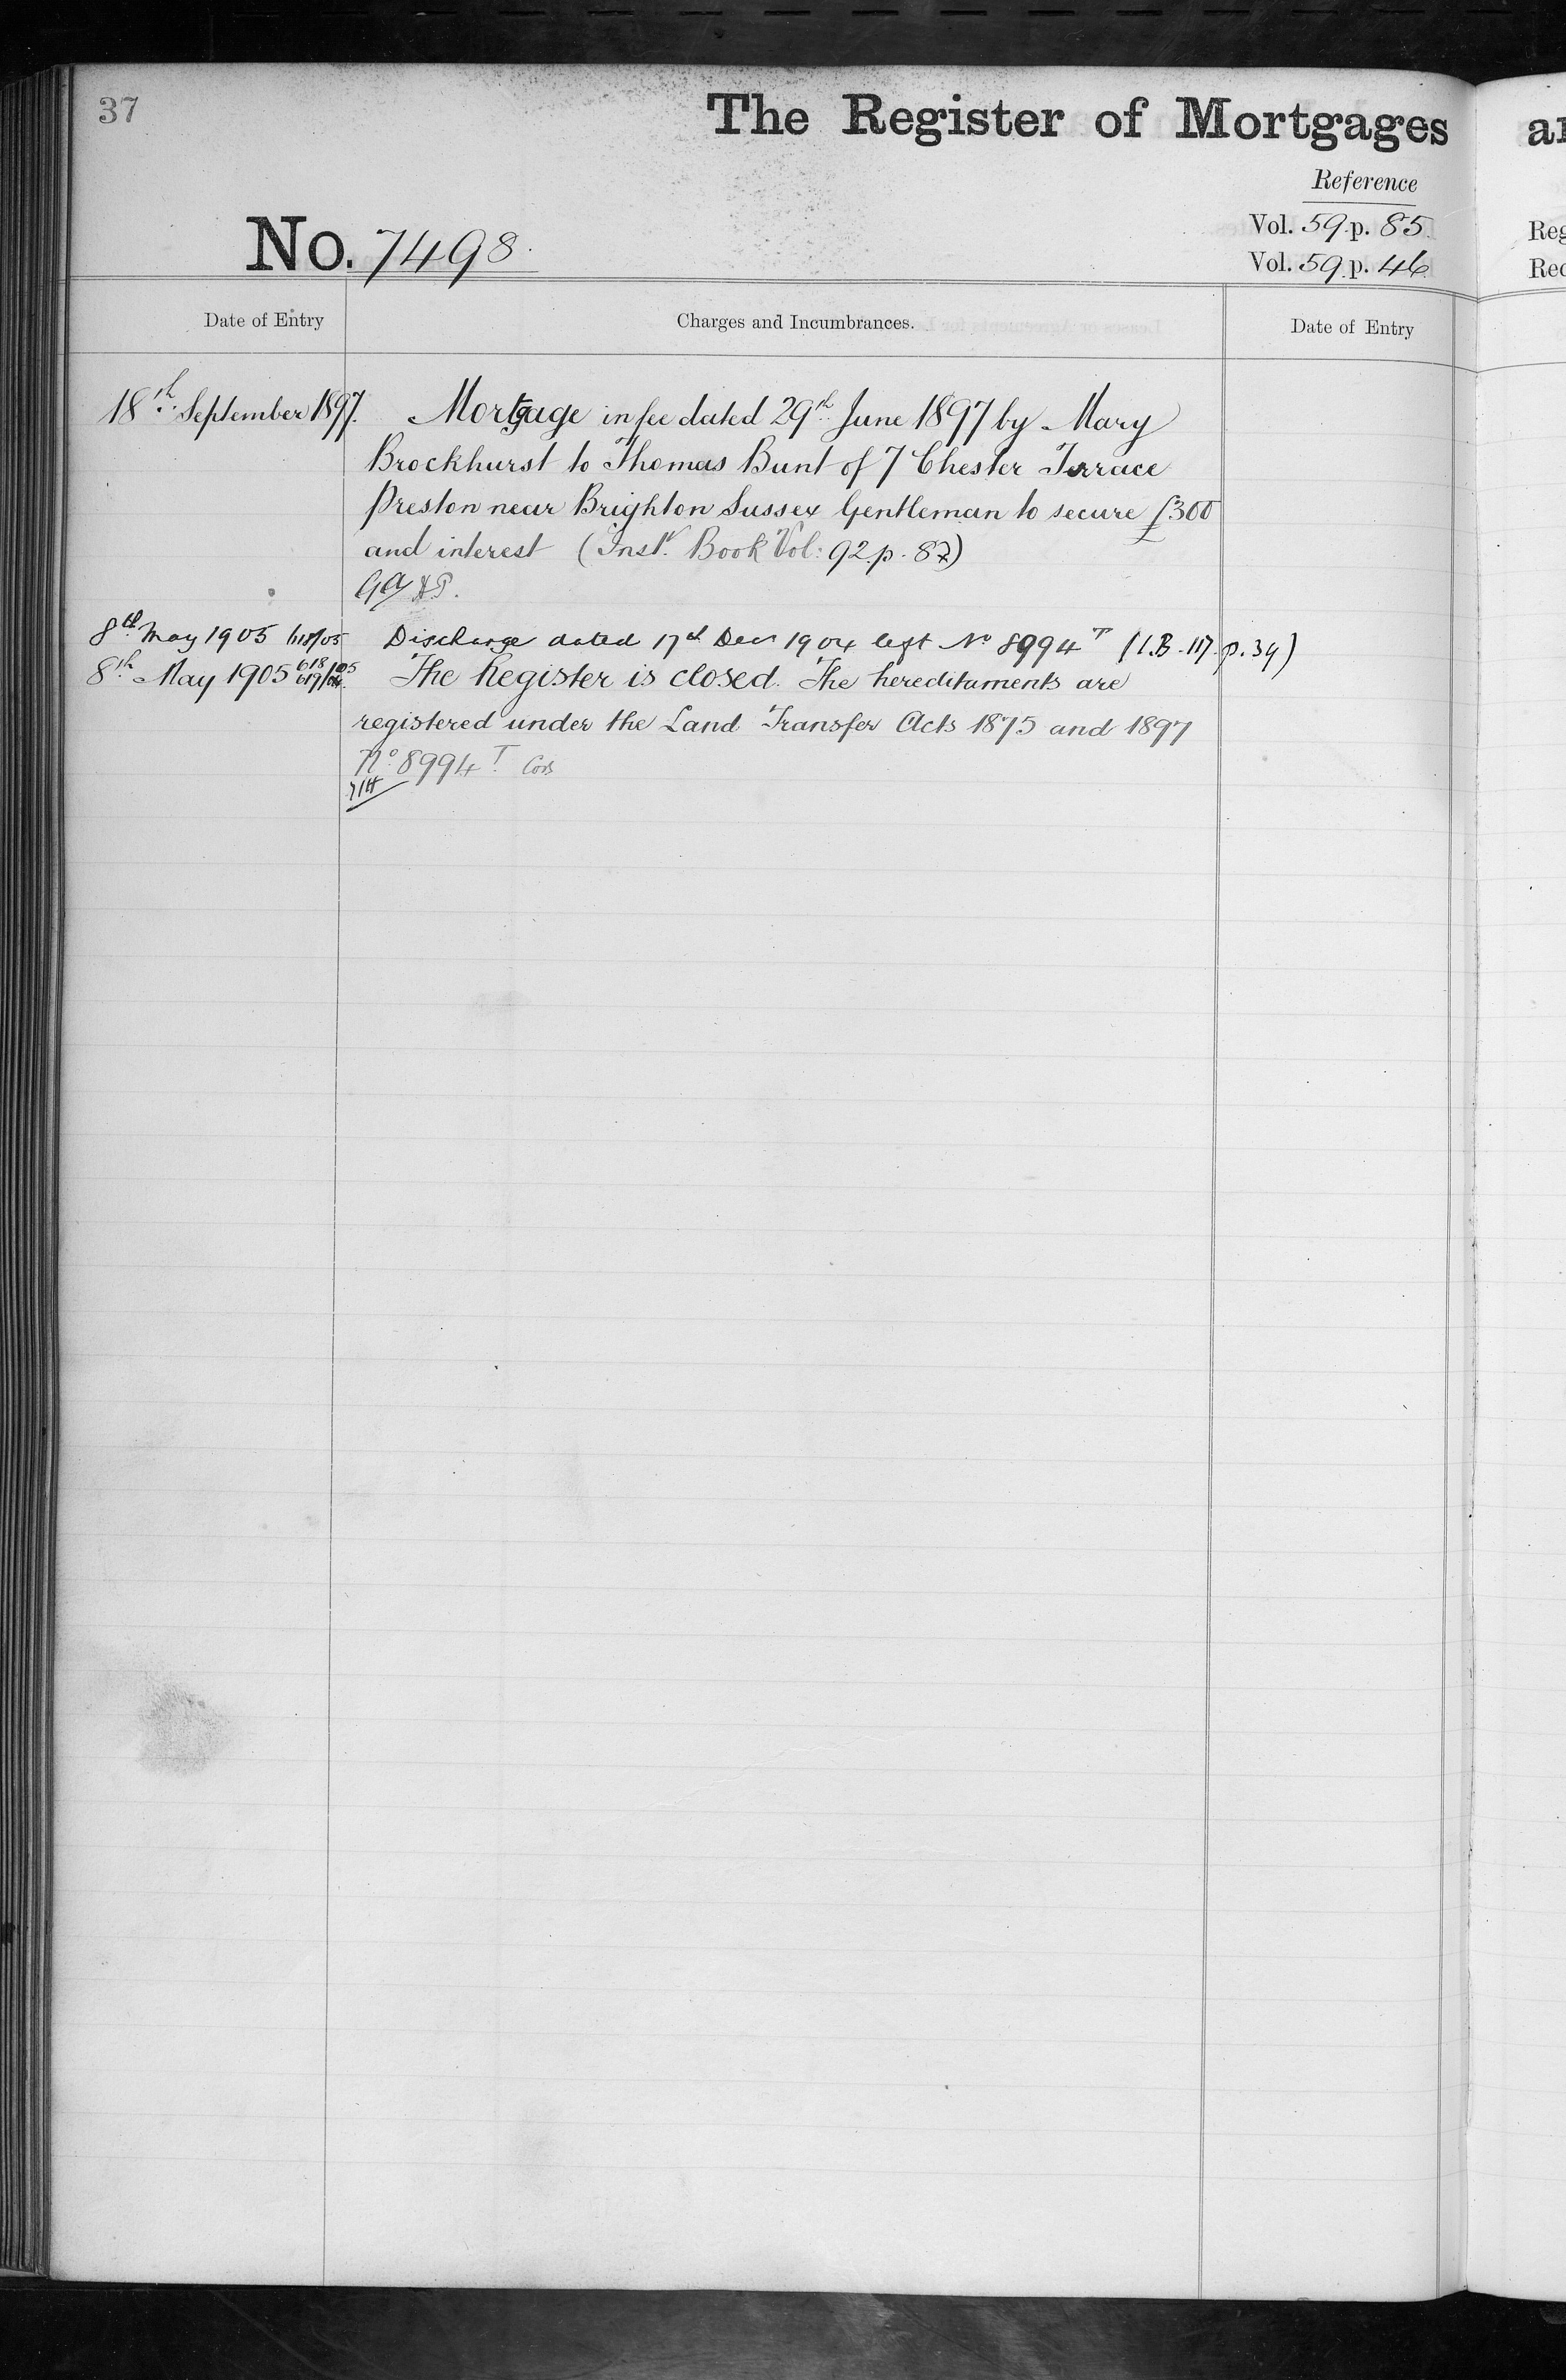 37
The Register of Mortgages
Reference
Vol. 59 p. 85
Vol. 59 p. 46
No. 7498
Date of Entry
Charges and Incumbrances.
Date of Entry
18th September 1897. Mortgage in fee dated 29th June 1897 by Mary
Brockhurst to Thomas Bunt of 7 Chester Terrace
Preston near Brighton Sussex Gentleman to secure £300
and interest (Inst. Book Vol: 92 p. 87)
8th May 1905 618/05 Discharge dated 17th Decr 1904 left No 8994 T (I.B. 117. p. 39)
8th May 1905 The Register is closed. The hereditaments are
registered under the Land Transfer Acts 1875 and 1897
No 8994 T.
Reg
Rec